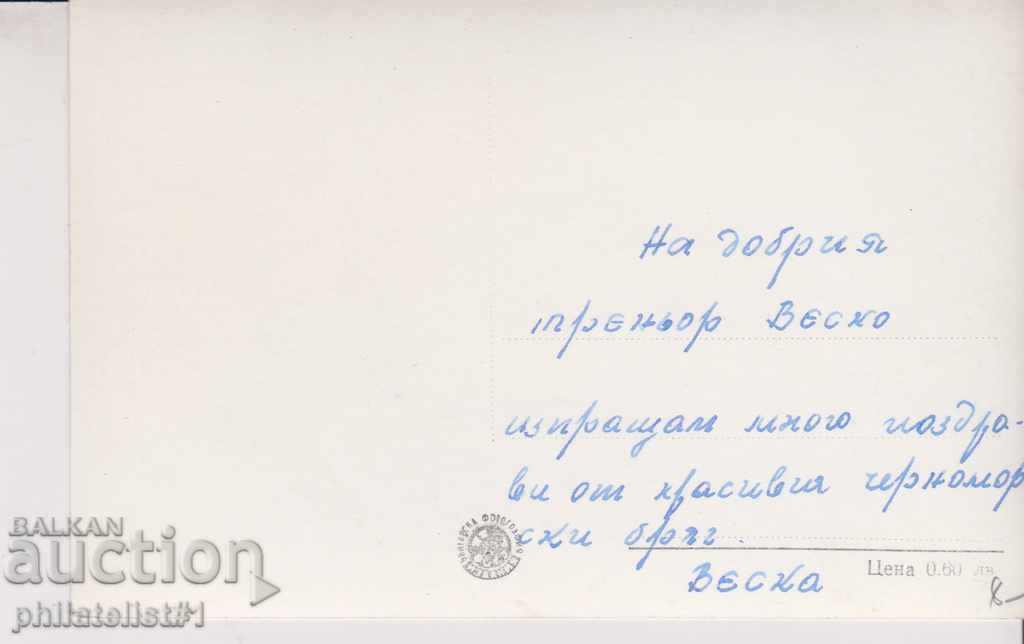 На добрия
треньор Веско
изпращам много поздра-
ви от красивия черномор
ски бряг.
Веска
Цена 0.60 лв.
8-
BALKAN
auction
philatelist#1